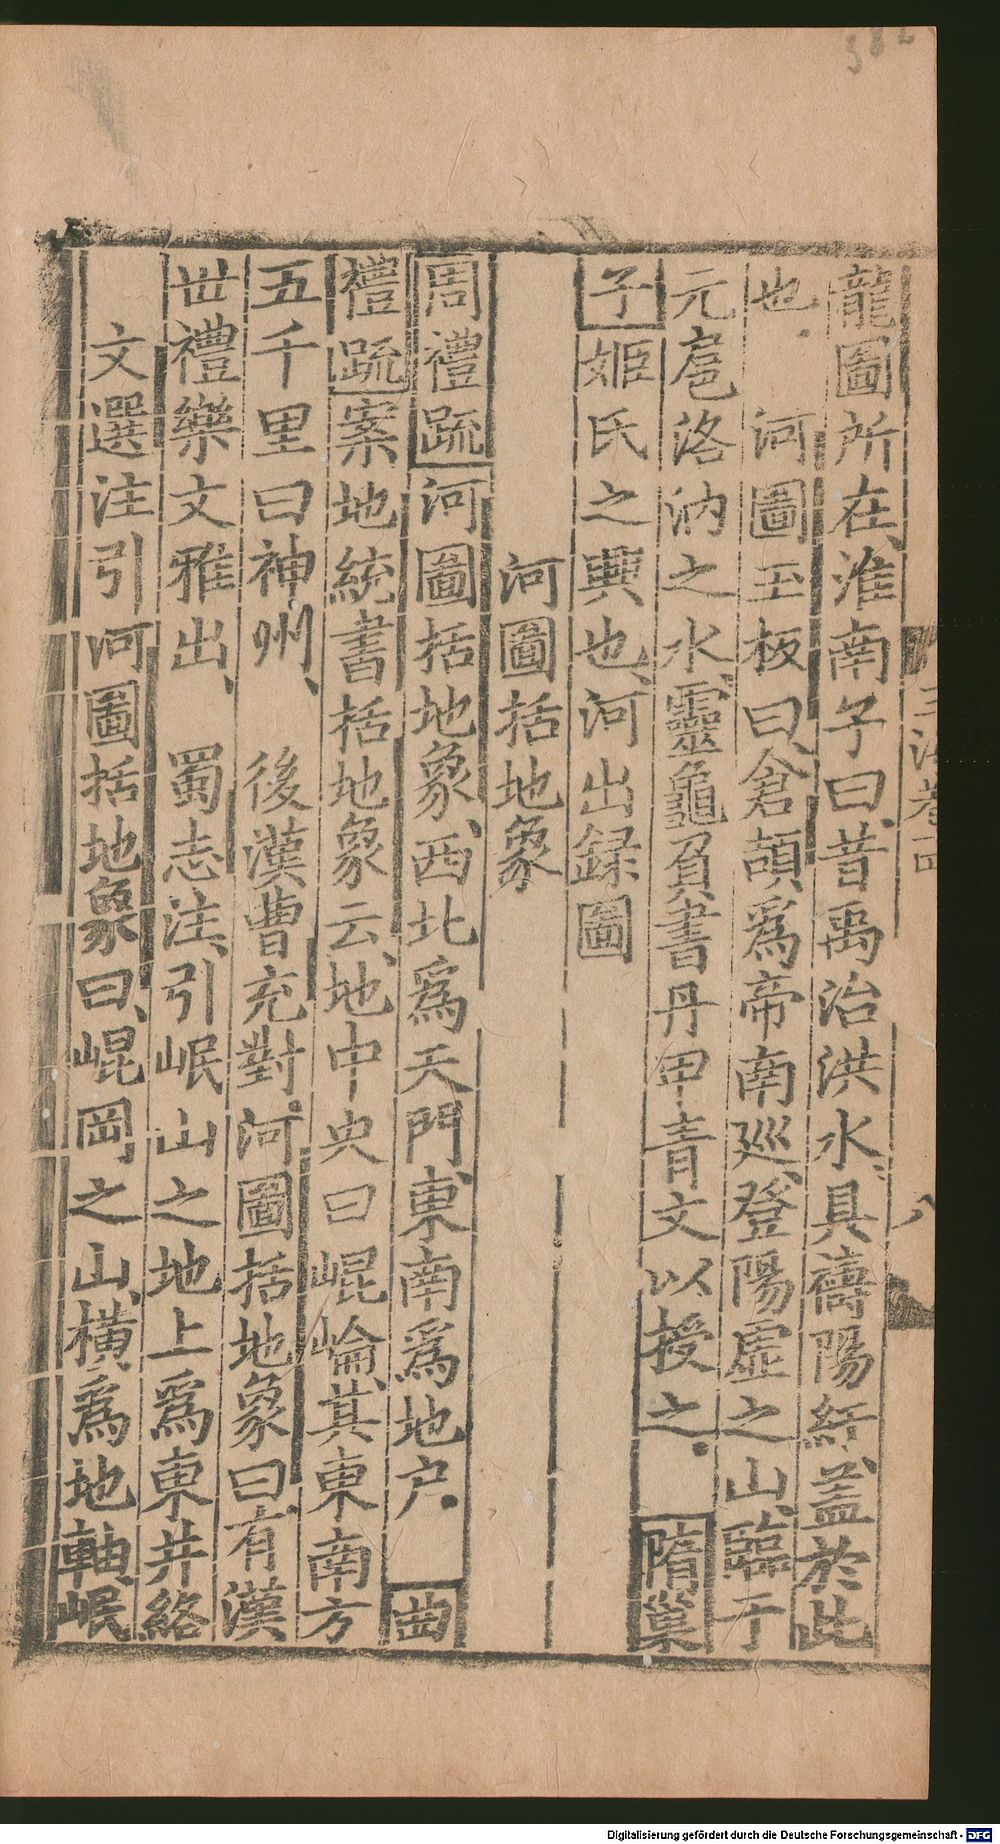 龍圖所在、淮南子曰、昔禹治洪水、具禱陽紆、蓋於此
也．　河圖玉板曰、倉頡爲帝南廵、登陽虛之山、臨于
元扈洛汭之水、靈龜負書丹甲青文以授之．　隋巢
子姬氏之興也、河出録圖
河圖括地象
周禮疏河圖括地象、西北爲天門、東南爲地户．　曲
禮疏案地統書括地象云、地中央曰崐崘、其東南方
五千里曰神州、　後漢曹充對、河圖括地象曰、有漢
丗禮樂文雅出、　蜀志注、引岷山之地上爲東井絡
文選注引河圖括地象曰、崐岡之山、橫爲地軸、岷
卷四
八
Digitalisierung gefördert durch die Deutsche Forschungsgemeinschaft - DFG